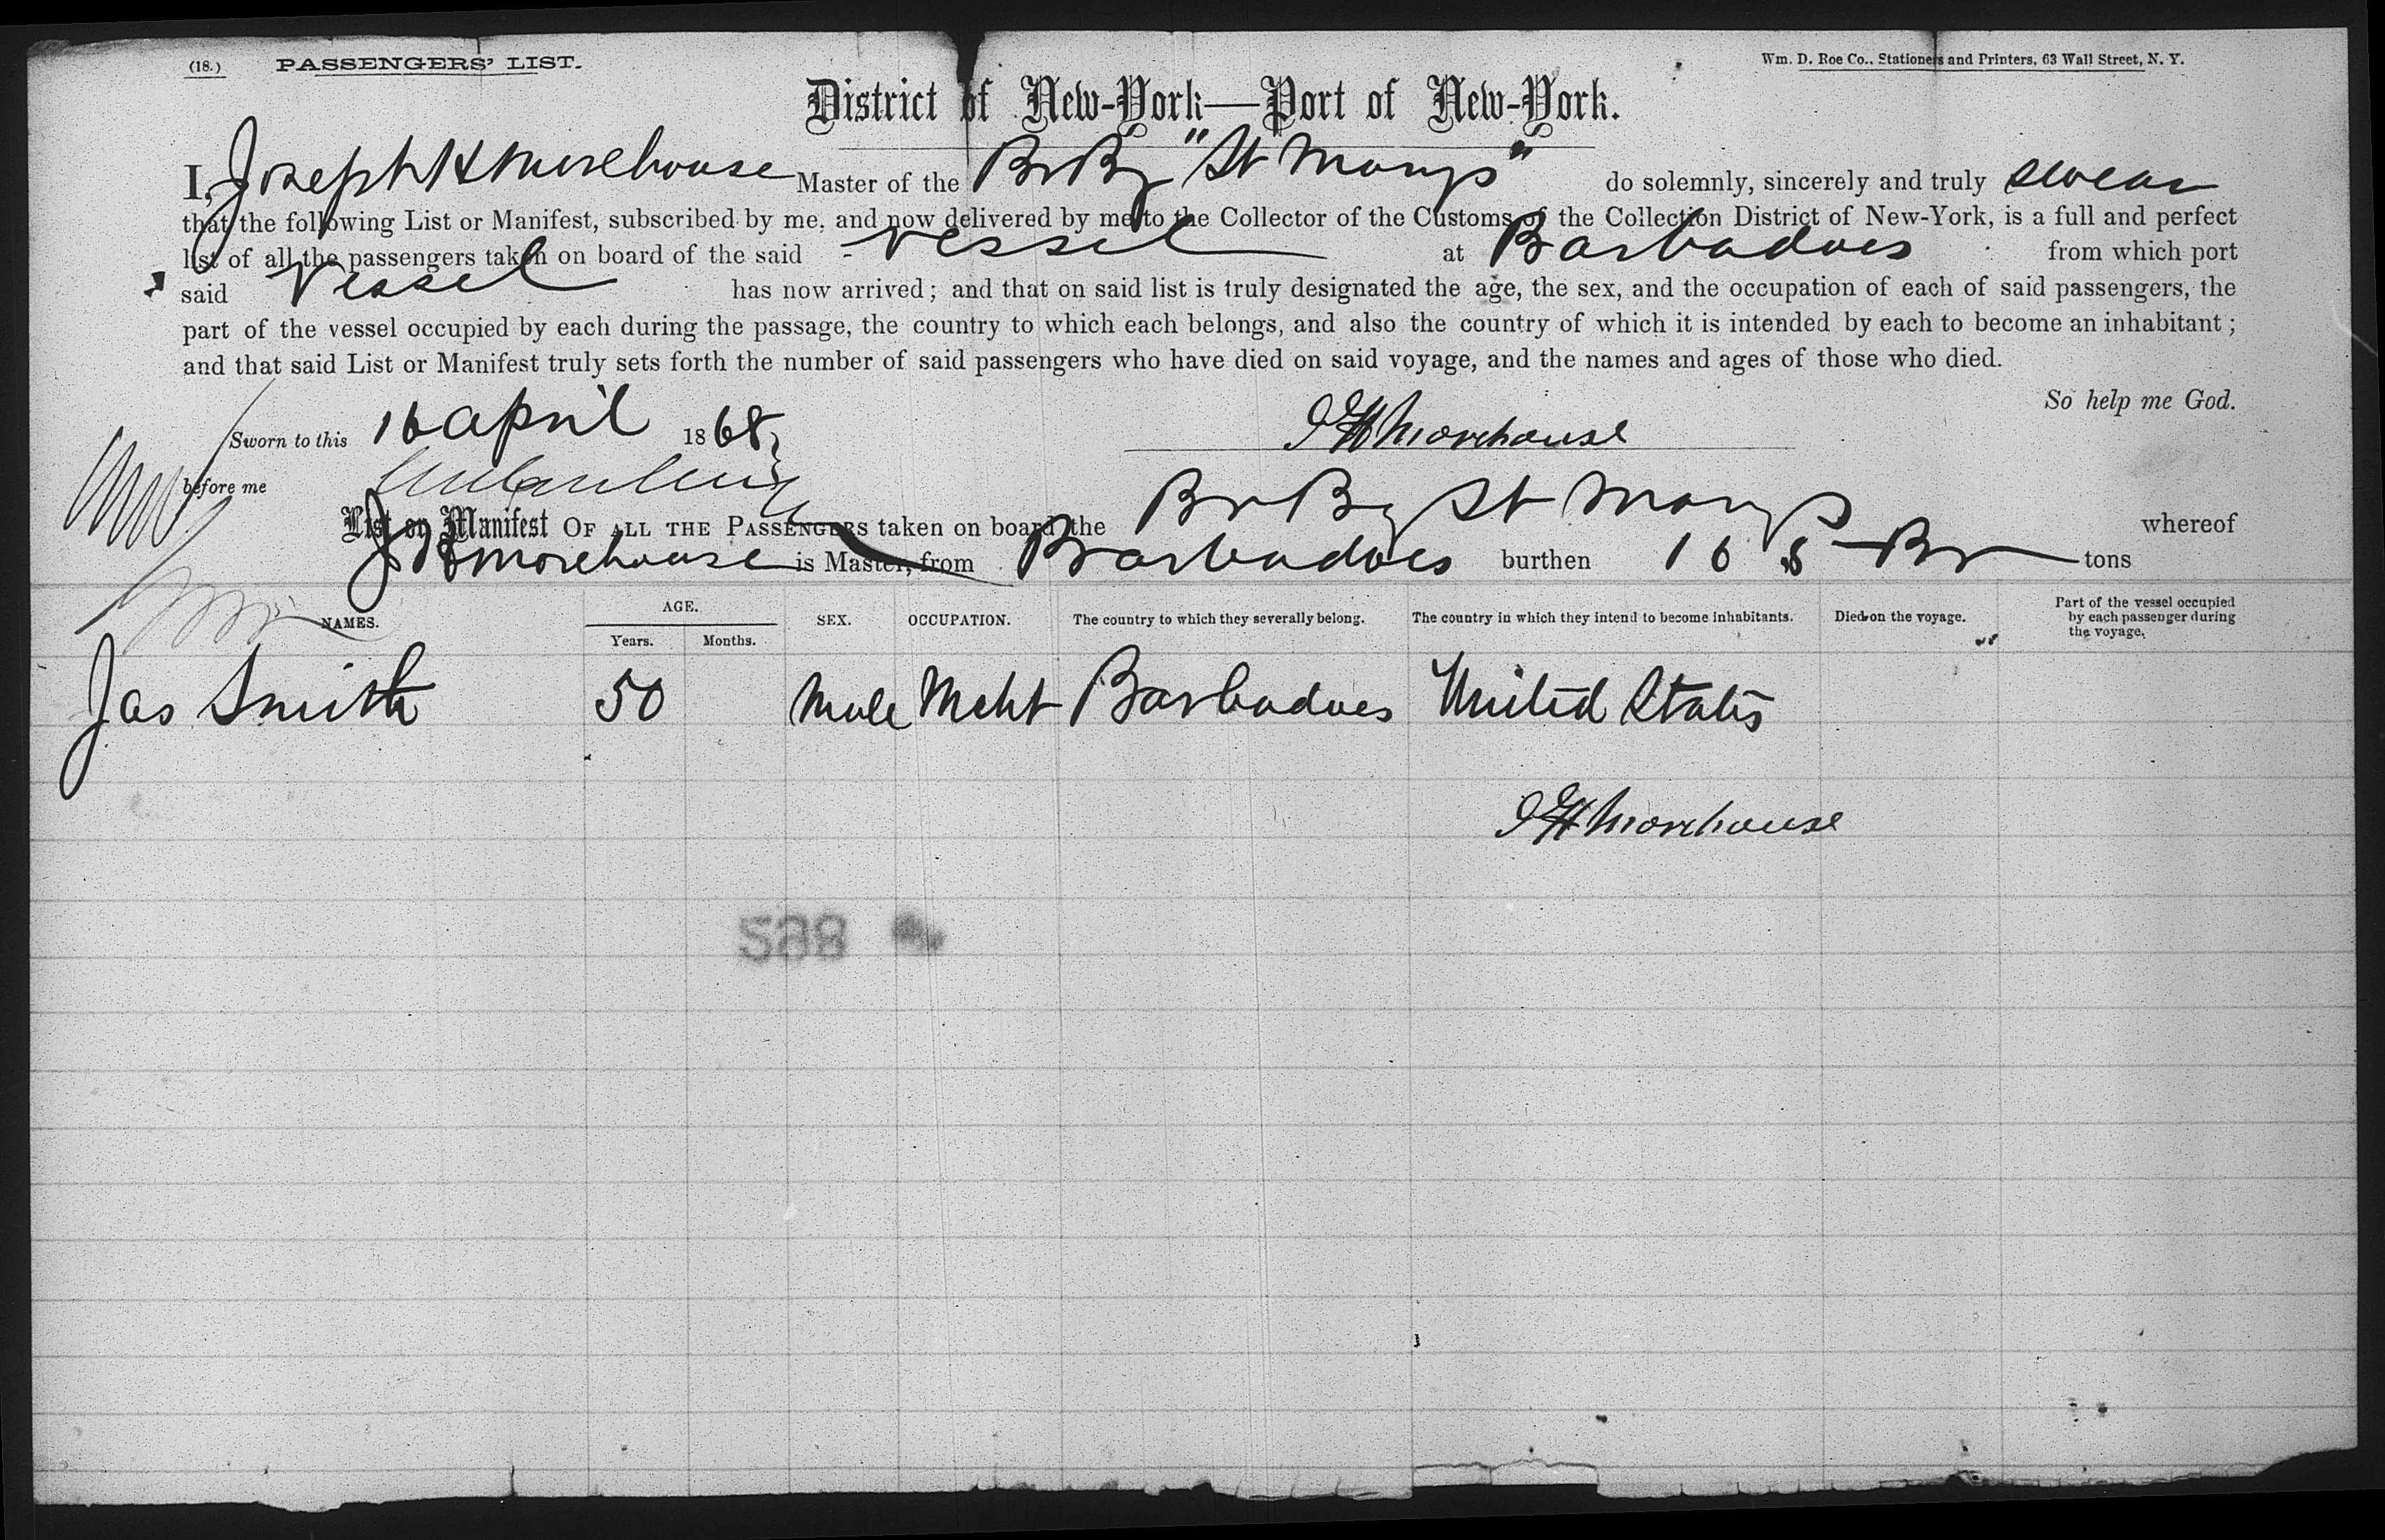 (18.) PASSENGERS' LIST. Wm. D. Roe Co., Stationers and Printers, 63 Wall Street, N. Y.
District of New-York—Port of New-York.
I, Joseph H Morehouse Master of the Br Bg "St Marys" do solemnly, sincerely and truly swear
that the following List or Manifest, subscribed by me, and now delivered by me to the Collector of the Customs of the Collection District of New-York, is a full and perfect
list of all the passengers taken on board of the said Vessel at Barbadoes from which port
said Vessel has now arrived; and that on said list is truly designated the age, the sex, and the occupation of each of said passengers, the
part of the vessel occupied by each during the passage, the country to which each belongs, and also the country of which it is intended by each to become an inhabitant;
and that said List or Manifest truly sets forth the number of said passengers who have died on said voyage, and the names and ages of those who died.
So help me God.
Sworn to this 16 April 1868, J H Morehouse
before me
List or Manifest OF ALL THE PASSENGERS taken on board the Br Bg St Marys whereof
J H Morehouse is Master, from Barbadoes burthen 168 Br tons
NAMES. AGE. Years. Months. SEX. OCCUPATION. The country to which they severally belong. The country in which they intend to become inhabitants. Died on the voyage. Part of the vessel occupied by each passenger during the voyage.
Jas Smith 50 Male Mcht Barbadoes United States
J H Morehouse